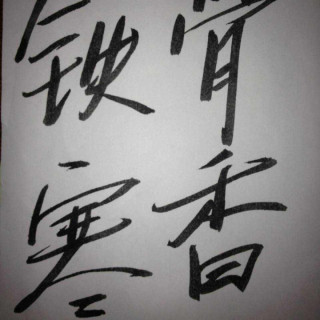 铁骨
寒香